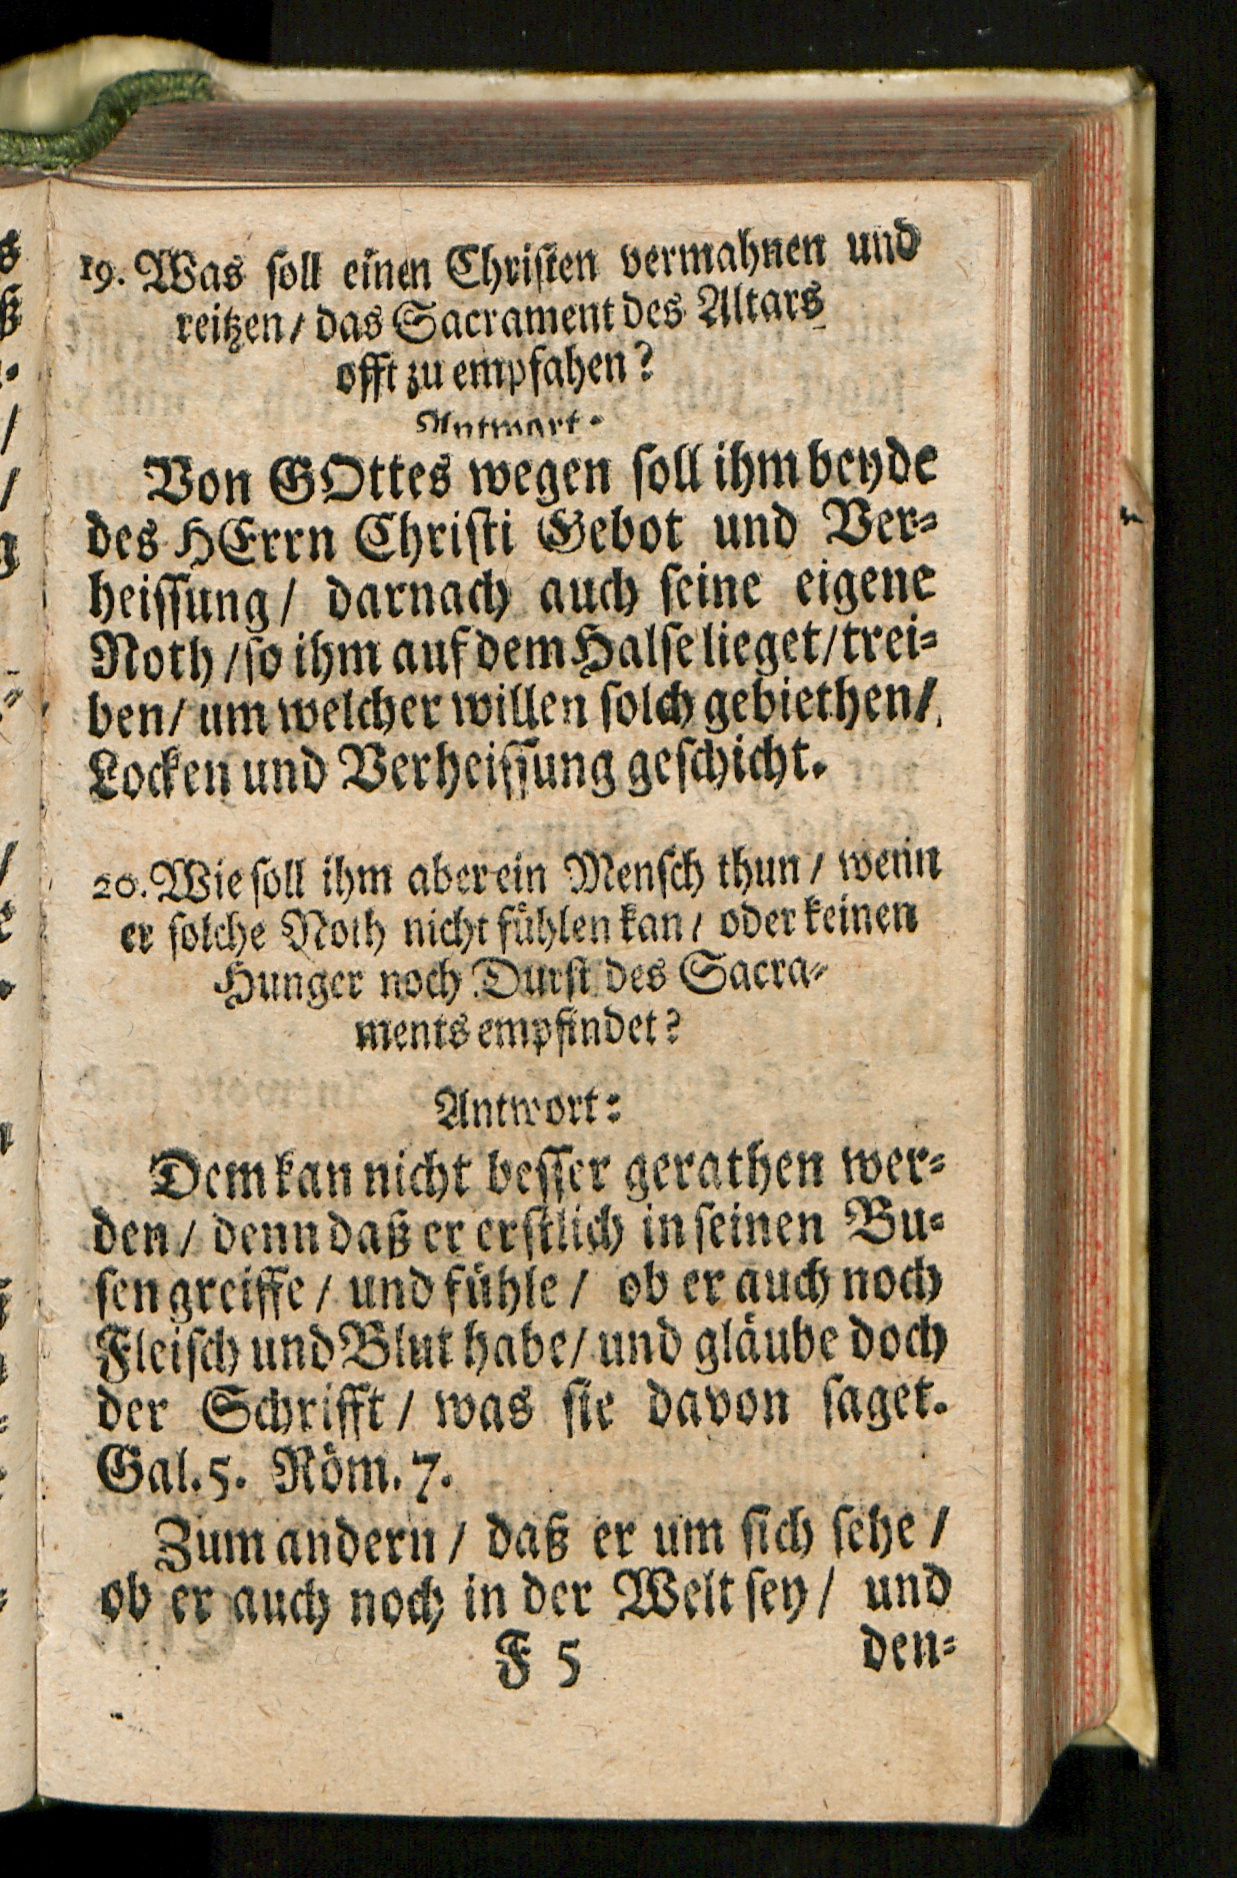 19. Was soll einen Christen vermahnen und
reitzen/ das Sacrament des Altars
offt zu empfahen?
Antwort.
Von GOttes wegen soll ihm beyde
des HErrn Christi Gebot und Ver-
heissung/ darnach auch seine eigene
Noth/ so ihm auf dem Halse lieget/ trei-
ben/ um welcher willen solch gebiethen/
Locken und Verheissung geschicht.
20. Wie soll ihm aber ein Mensch thun/ wenn
er solche Noth nicht fühlen kan/ oder keinen
Hunger noch Durst des Sacra-
ments empfindet?
Antwort:
Dem kan nicht besser gerathen wer-
den/ denn daß er erstlich in seinen Bu-
sen greiffe/ und fühle/ ob er auch noch
Fleisch und Blut habe/ und gläube doch
der Schrifft/ was sie davon saget.
Gal. 5. Röm. 7.
Zum andern/ daß er um sich sehe/
ob er auch noch in der Welt sey/ und
F 5 den-